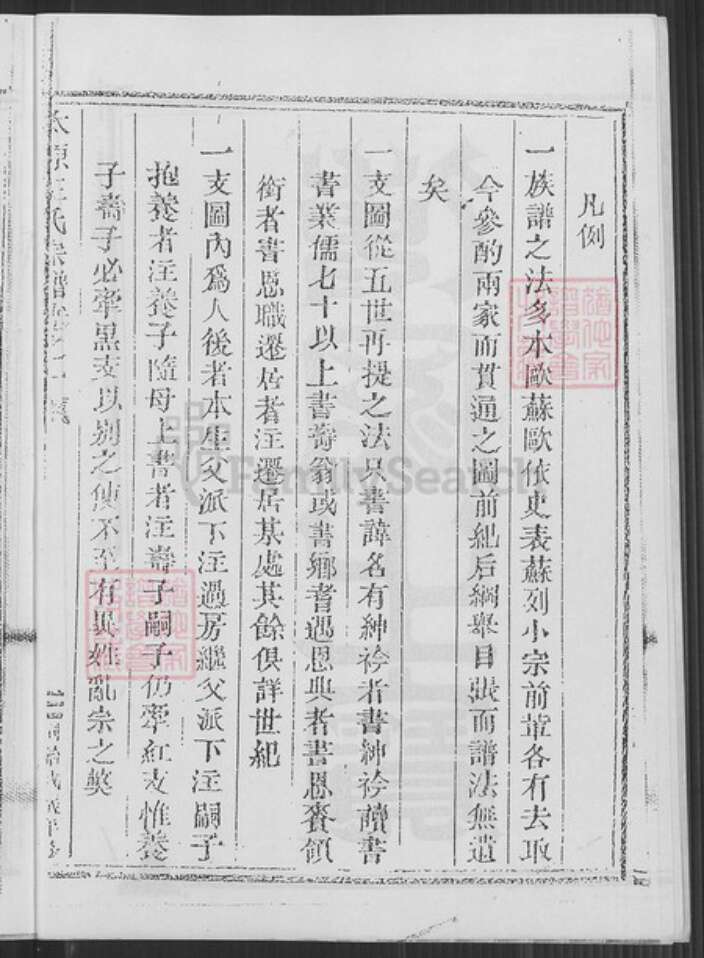 凡例
一族譜之法多本歐蘇歐依史表蘇列小宗前輩各有去取
今參酌兩家而貫通之圖前紀后綱舉目張而譜法無遺
矣
一支圖從五世再提之法只書諱名有紳衿者書紳衿讀書
書業儒七十以上書壽翁或書鄉耆遇恩典者書恩賚領
銜者書恩職遷居者注遷居某處其餘俱詳世紀
一支圖內爲人後者本生父派下注過房繼父派下注嗣子
抱養者注養子隨母上書者注壽子嗣子仍牽紅支惟養
子壽子必牽黑支以别之使不至有異姓亂宗之獘
太原王氏宗譜
同治
FamilySearch